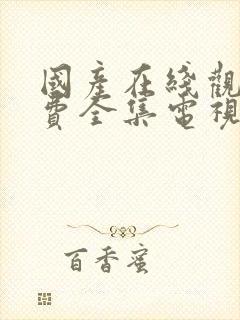 國產在綫觀
費全集電視
百香蜜